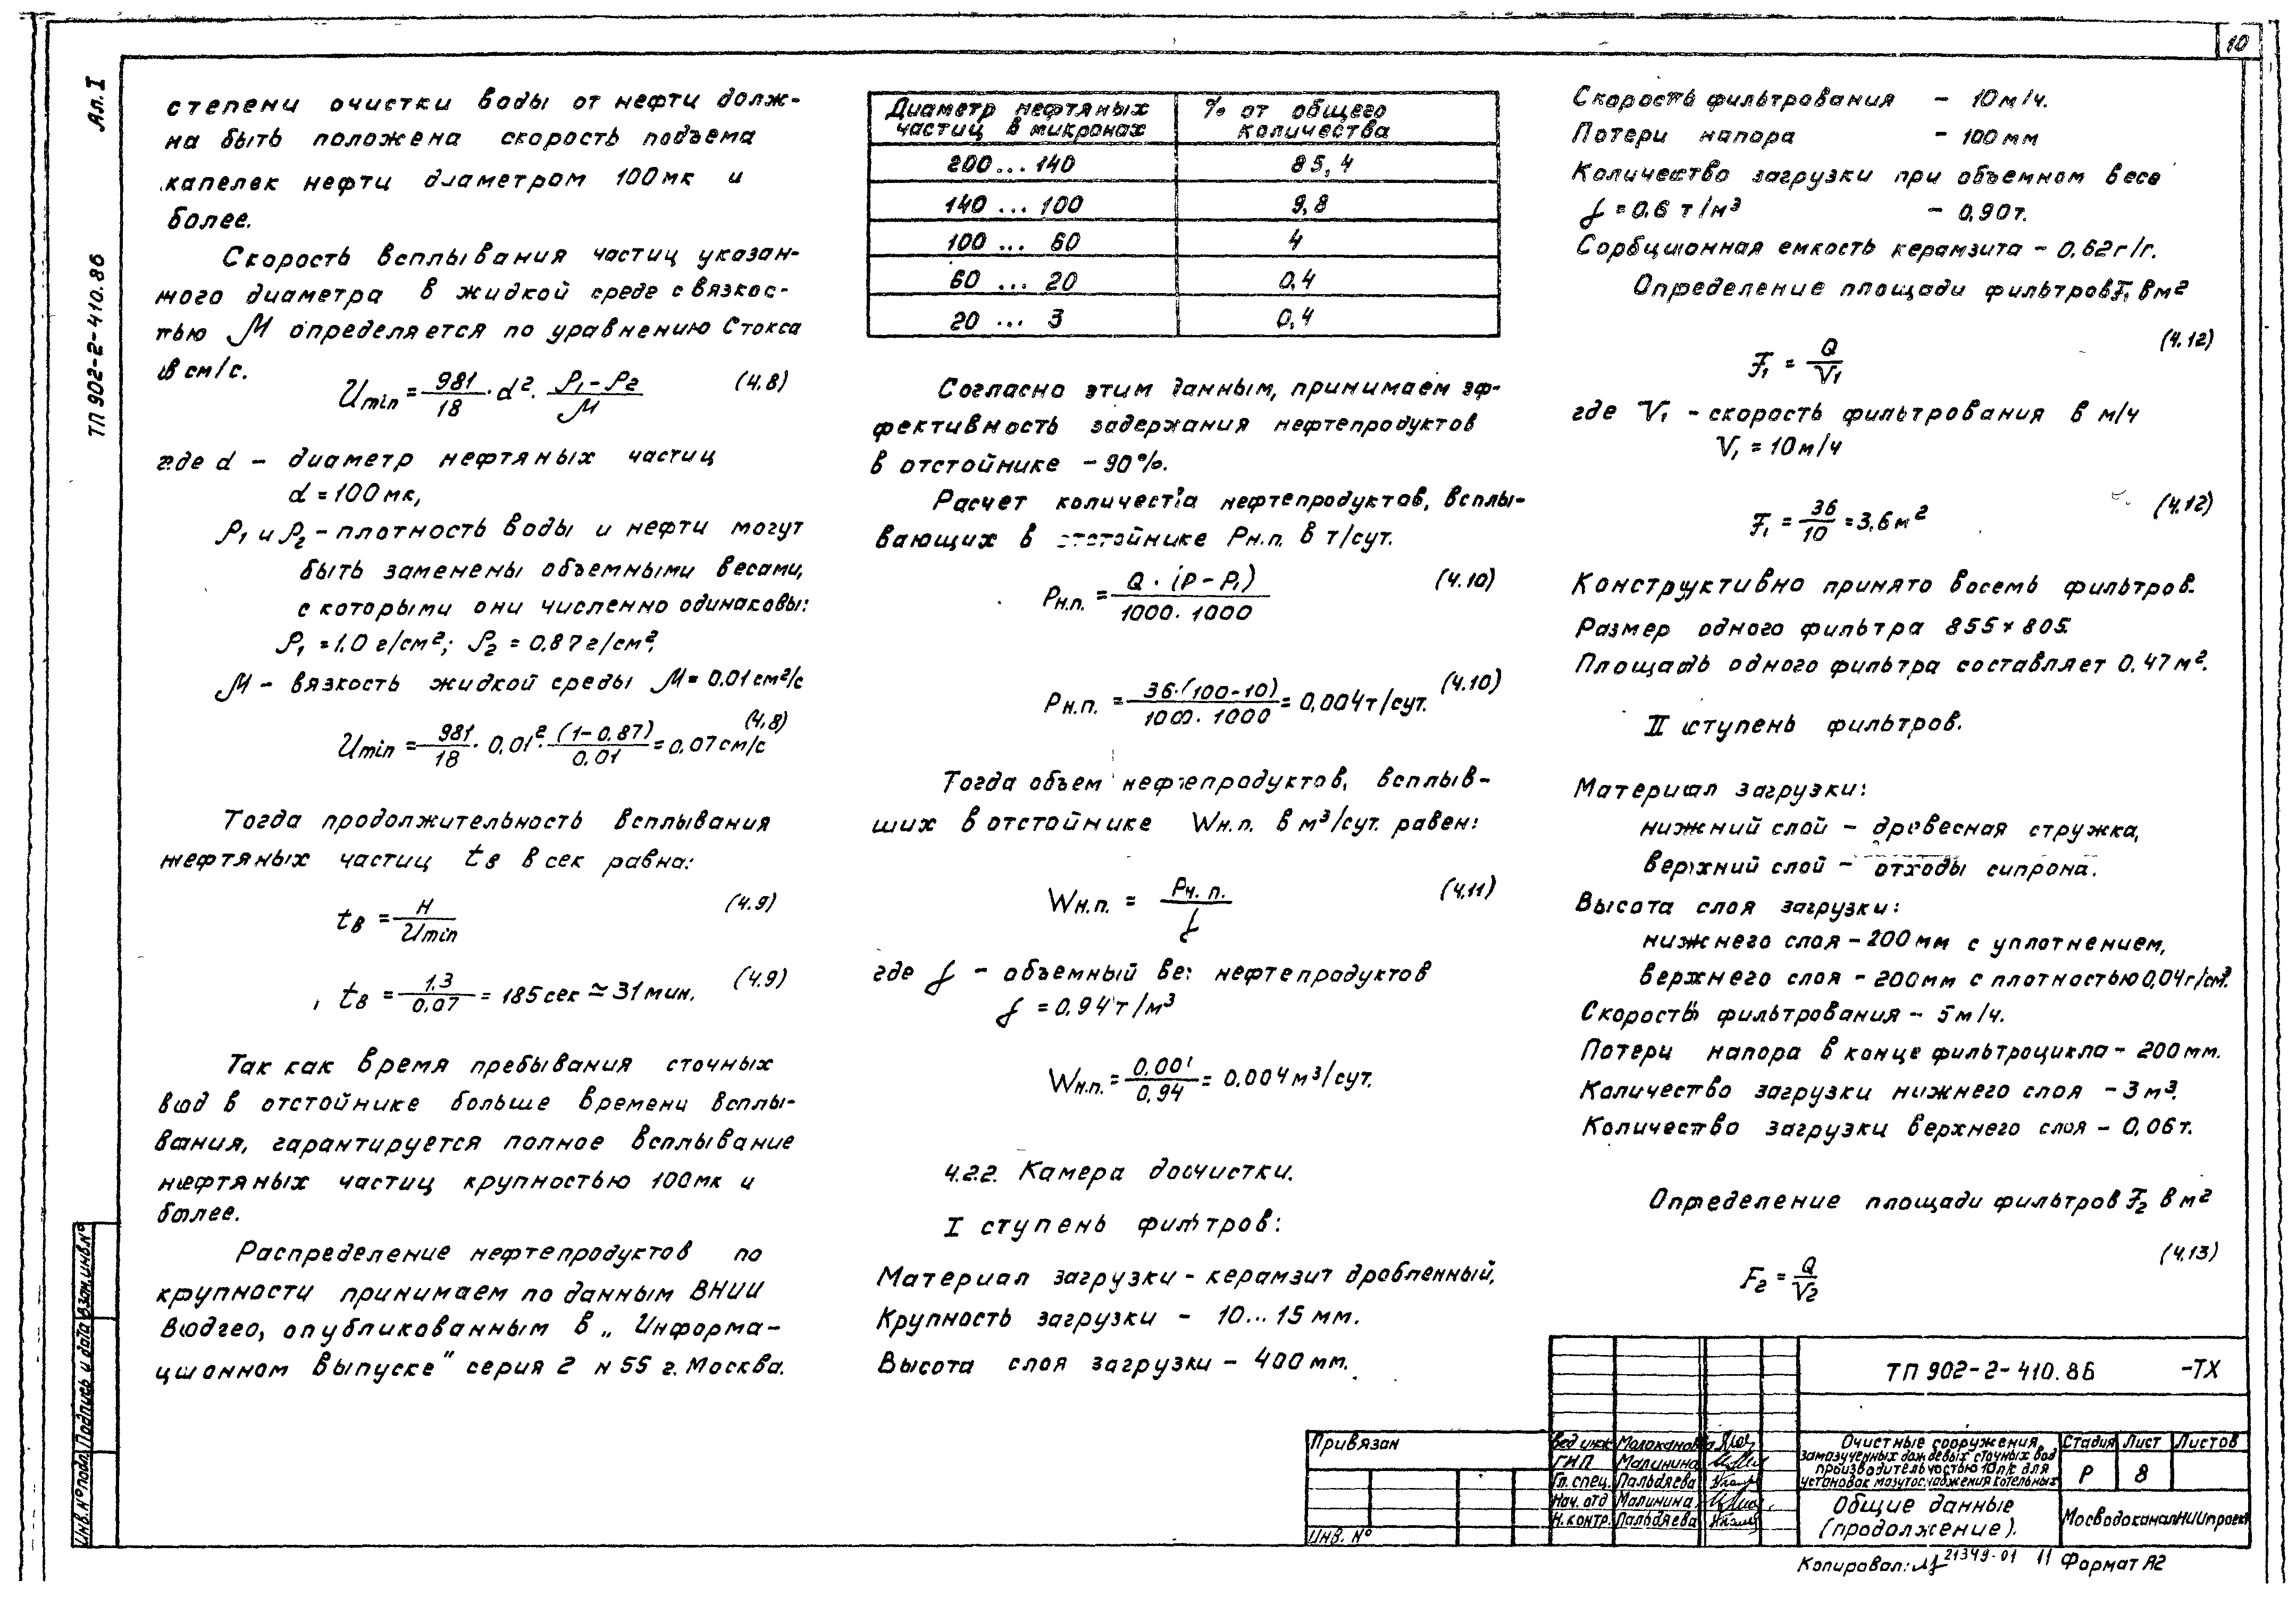 10
Ал. I
ТП 902-2-410.86
степени очистки воды от нефти долж-
на быть положена скорость подъема
капелек нефти диаметром 100 мк и
более.
Скорость всплывания частиц указан-
ного диаметра в жидкой среде с вязкос-
тью μ определяется по уравнению Стокса
в см/с.
Umin = 981/18 · d² · (ρ₁-ρ₂)/μ (4.8)
где d - диаметр нефтяных частиц
d = 100 мк,
ρ₁ и ρ₂ - плотность воды и нефти могут
быть заменены объемными весами,
с которыми они численно одинаковы:
ρ₁ = 1.0 г/см²; ρ₂ = 0.87 г/см².
μ - вязкость жидкой среды μ = 0.01 см²/с
Umin = 981/18 · 0,01² · (1-0.87)/0.01 = 0,07 см/с (4.8)
Тогда продолжительность всплывания
нефтяных частиц tв в сек равна:
tв = H/Umin (4.9)
tв = 1.3/0,07 = 185 сек ≃ 31 мин. (4.9)
Так как время пребывания сточных
вод в отстойнике больше времени всплы-
вания, гарантируется полное всплывание
нефтяных частиц крупностью 100 мк и
более.
Распределение нефтепродуктов по
крупности принимаем по данным ВНИИ
Водгео, опубликованным в „Информа-
ционном выпуске" серия 2 н 55 г. Москва.
Диаметр нефтяных частиц в микронах | % от общего количества
200 ... 140 | 85,4
140 ... 100 | 9,8
100 ... 60 | 4
60 ... 20 | 0,4
20 ... 3 | 0,4
Согласно этим данным, принимаем эф-
фективность задержания нефтепродуктов
в отстойнике - 90%.
Расчет количества нефтепродуктов, всплы-
вающих в отстойнике Рн.п. в т/сут.
Рн.п. = Q · (P - P₁)/1000 · 1000 (4.10)
Рн.п. = 36·(100-10)/1000 · 1000 = 0,004 т/сут. (4.10)
Тогда объем нефтепродуктов, всплыв-
ших в отстойнике Wн.п. в м³/сут. равен:
Wн.п. = Рн.п./γ (4.11)
где γ - объемный вес нефтепродуктов
γ = 0,94 т/м³
Wн.п. = 0,00/0,94 = 0,004 м³/сут.
4.2.2. Камера доочистки.
I ступень фильтров:
Материал загрузки - керамзит дробленный,
Крупность загрузки - 10...15 мм.
Высота слоя загрузки - 400 мм.
Скорость фильтрования - 10 м/ч.
Потери напора - 100 мм
Количество загрузки при объемном весе
γ = 0,6 т/м³ - 0,90 т.
Сорбционная емкость керамзита - 0,62 г/г.
Определение площади фильтров F₁ в м²
F₁ = Q/V₁ (4.12)
где V₁ - скорость фильтрования в м/ч
V₁ = 10 м/ч
F₁ = 36/10 = 3,6 м² (4.12)
Конструктивно принято восемь фильтров.
Размер одного фильтра 855 × 805.
Площадь одного фильтра составляет 0,47 м².
II ступень фильтров.
Материал загрузки:
нижний слой - древесная стружка,
верхний слой - отходы сипрона.
Высота слоя загрузки:
нижнего слоя - 200 мм с уплотнением,
верхнего слоя - 200 мм с плотностью 0,04 г/см³.
Скорость фильтрования - 5 м/ч.
Потери напора в конце фильтроцикла - 200 мм.
Количество загрузки нижнего слоя - 3 м³.
Количество загрузки верхнего слоя - 0,06 т.
Определение площади фильтров F₂ в м²
F₂ = Q/V₂ (4.13)
ТП 902-2-410.86 -ТХ
Привязан
Инв. №
Вед инж Молоканова
ГИП Малинина
Гл. спец. Пальдяева
Нач. отд Малинина
Н. контр. Пальдяева
Очистные сооружения
замазученных дождевых сточных вод
производительностью 10 л/с для
установок мазутоснабжения котельных
Стадия Лист Листов
Р 8
Общие данные
(продолжение).
МосводоканалНИИпроект
Копировал: 21349-01 11 Формат А2
Инв. № подл. Подпись и дата Взам. инв. №